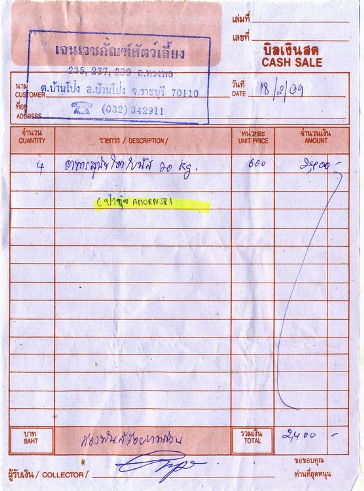 เล่มที่
เลขที่
เจนเวชภัณฑ์สัตว์เลี้ยง
235, 237, 239 ถ.ทรงพล
ต.บ้านโป่ง อ.บ้านโป่ง จ.ราชบุรี 70110
☎ (032) 342911
บิลเงินสด
CASH SALE
นาม
CUSTOMER
ที่อยู่
ADDRESS
วันที่
DATE 18/2/09
จำนวน รายการ / DESCRIPTION / หน่วยละ จำนวนเงิน
QUANTITY UNIT PRICE AMOUNT
4 20 kg. 600 2,400 -
AMORNSRI
บาท สองพันสี่ร้อยบาทถ้วน รวมเงิน 2,400 -
BAHT TOTAL
ผู้รับเงิน / COLLECTOR /
ขอขอบคุณ
ท่านที่อุดหนุน